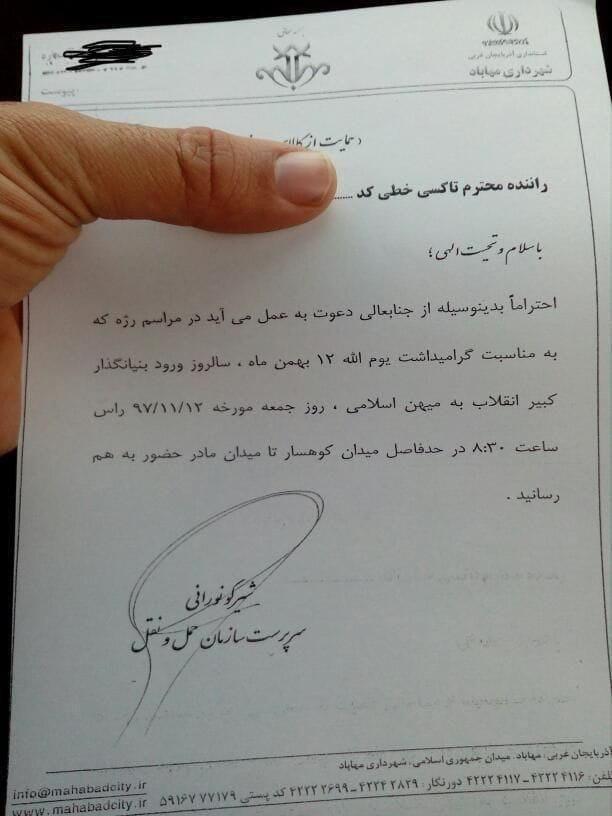 بسمه تعالی
استانداری آذربایجان غربی
شهرداری مهاباد
پیوست
حمایت از کالای
راننده محترم تاکسی خطی کد ..........
باسلام و تحیت الهی ؛
احتراماً بدینوسیله از جنابعالی دعوت به عمل می آید در مراسم رژه که
به مناسبت گرامیداشت یوم الله ۱۲ بهمن ماه ، سالروز ورود بنیانگذار
کبیر انقلاب به میهن اسلامی ، روز جمعه مورخه ۹۷/۱۱/۱۲ راس
ساعت ۸:۳۰ در حدفاصل میدان کوهسار تا میدان مادر حضور به هم
رسانید .
شیرکو نورانی
سرپرست سازمان حمل و نقل
آذربایجان غربی، مهاباد، میدان جمهوری اسلامی، شهرداری مهاباد
تلفن: ۴۲۲۲۴۱۱۶ - ۴۲۲۲۴۱۱۷ دورنگار: ۴۲۲۴۲۸۲۹ - ۴۲۲۲۲۶۹۹ کد پستی ۵۹۱۶۷۷۷۱۷۹
info@mahabadcity.ir
www.mahabadcity.ir